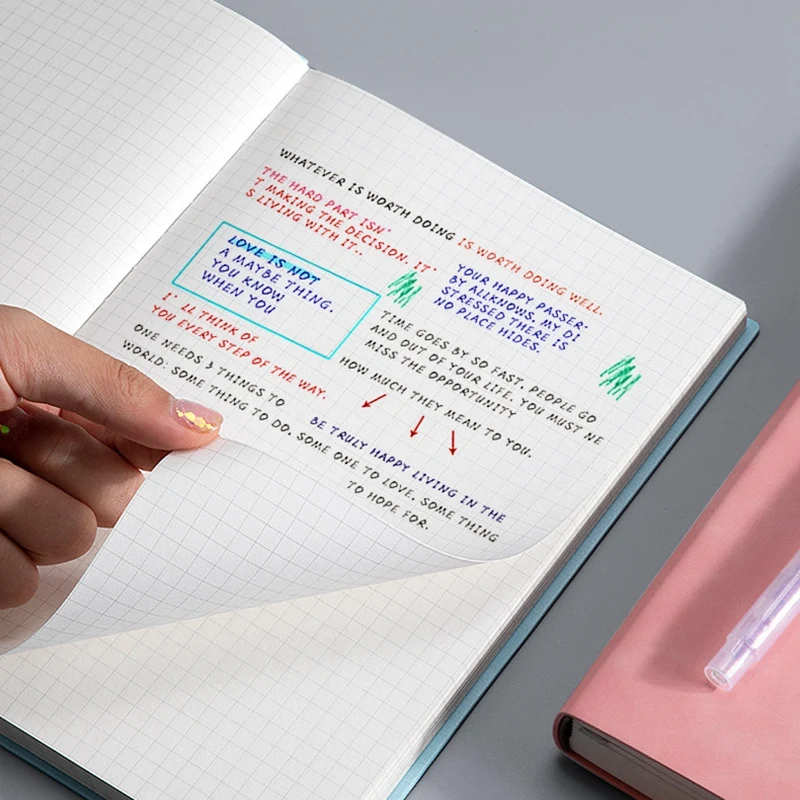 WHATEVER IS WORTH DOING IS WORTH DOING WELL.
THE HARD PART ISN'
T MAKING THE DECISION. IT'
S LIVING WITH IT..
LOVE IS NOT
A MAYBE THING.
YOU KNOW
WHEN YOU
YOUR HAPPY PASSER-
BY ALLKNOWS, MY DI
STRESSED THERE IS
NO PLACE HIDES.
I' LL THINK OF
YOU EVERY STEP OF THE WAY.
TIME GOES BY SO FAST, PEOPLE GO
AND OUT OF YOUR LIFE. YOU MUST NE
MISS THE OPPORTUNITY
HOW MUCH THEY MEAN TO YOU.
ONE NEEDS 3 THINGS TO
BE TRULY HAPPY LIVING IN THE
WORLD: SOME THING TO DO, SOME ONE TO LOVE, SOME THING
TO HOPE FOR.